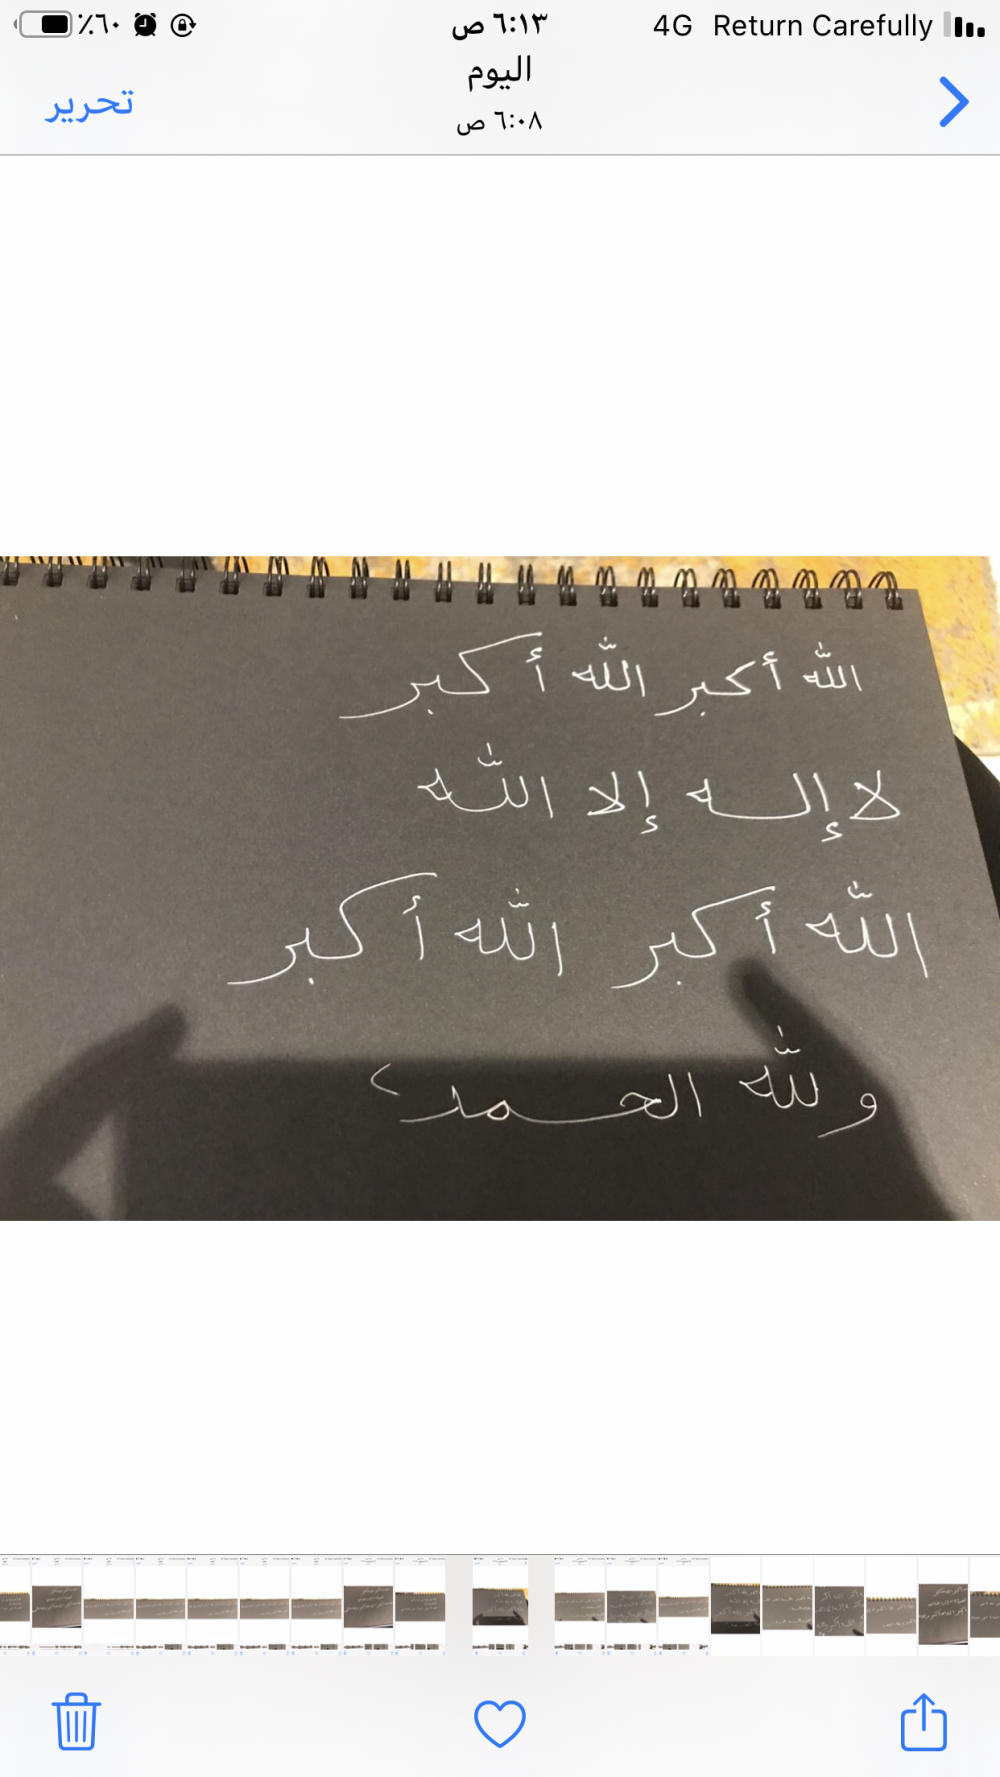 ٪٦٠ ٦:١٣ ص 4G Return Carefully
اليوم
تحرير
٦:٠٨ ص
الله أكبر الله أكبر
لا إله إلا الله
الله أكبر الله أكبر
ولله الحمد